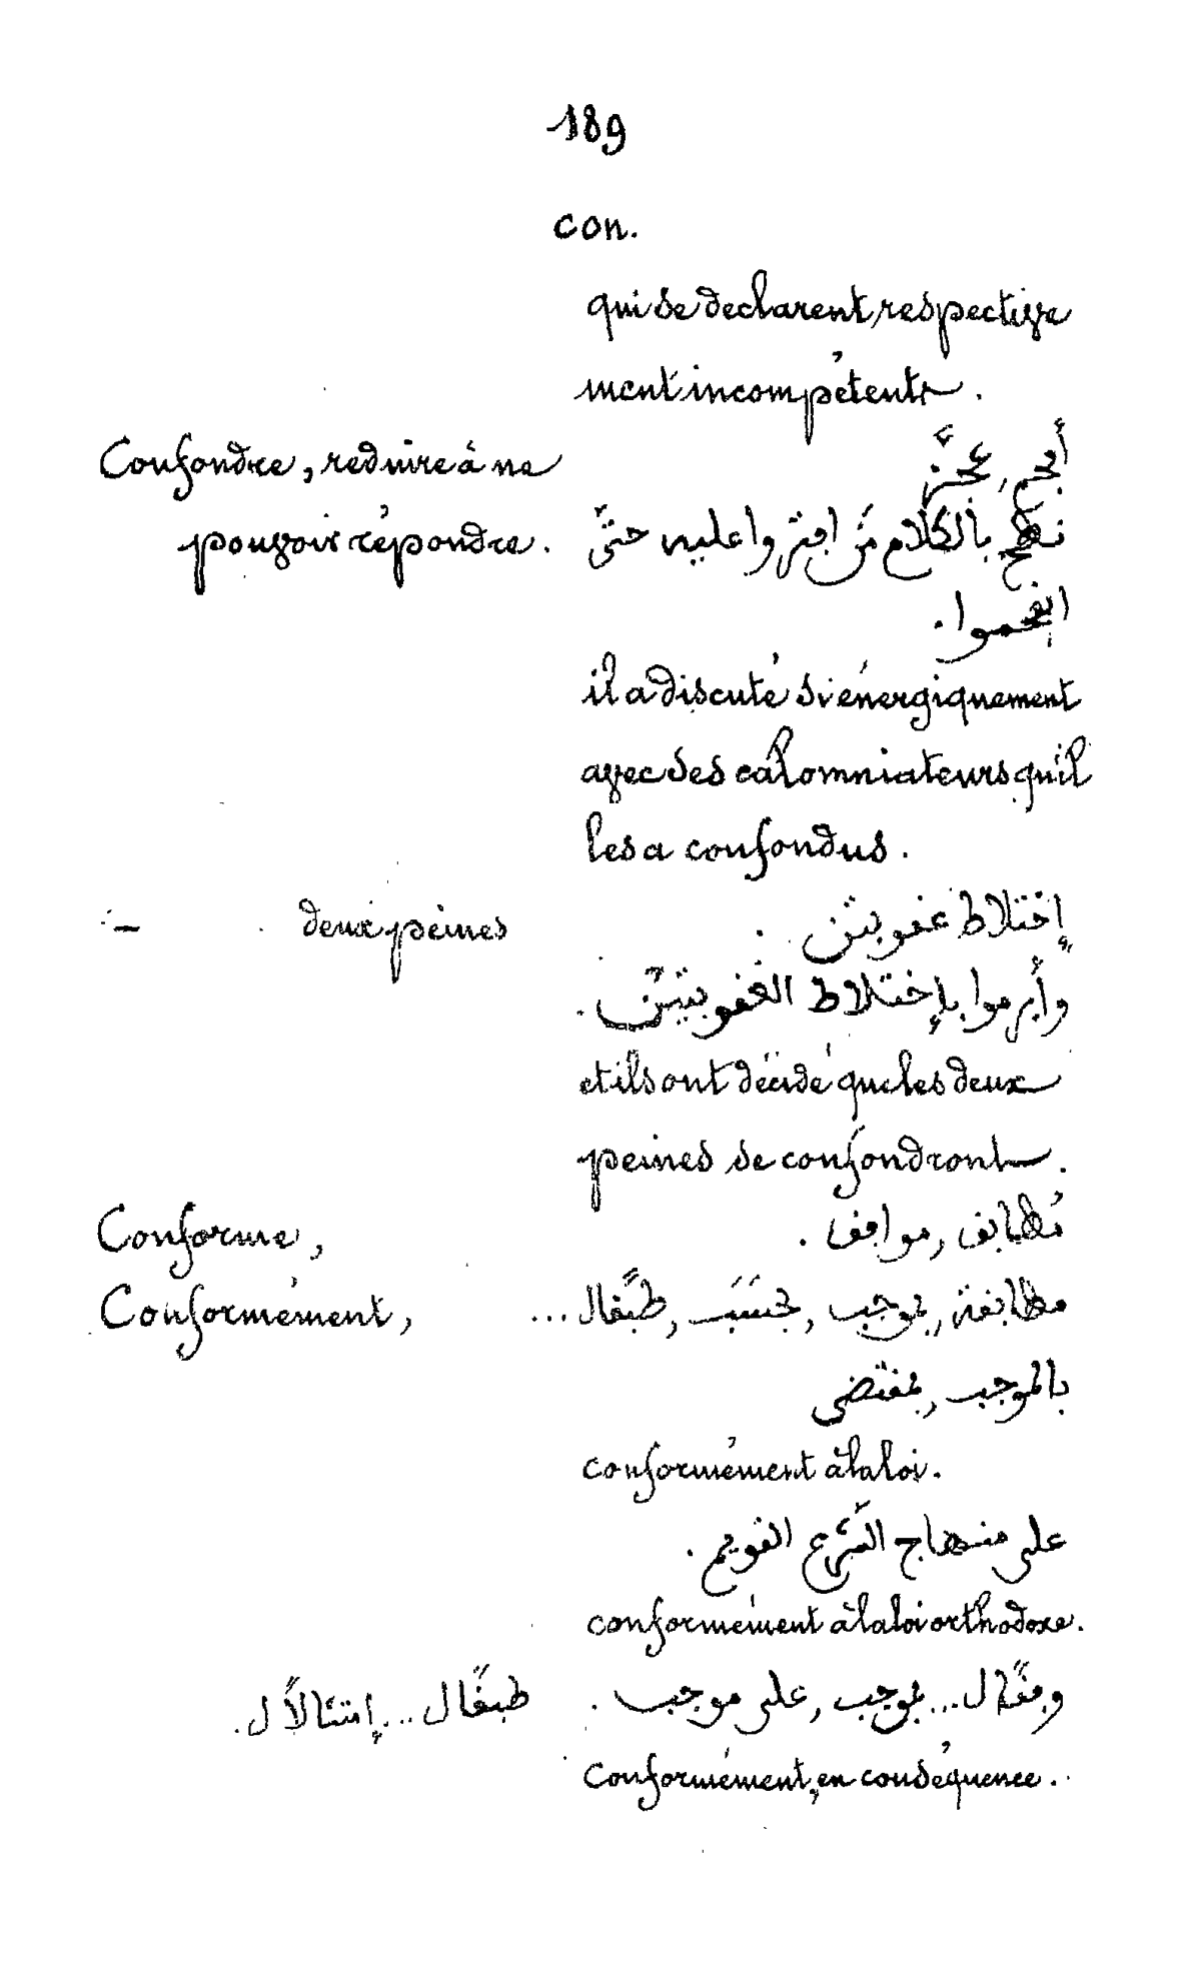 189
con.
qui se declarent respective
ment incompétents.
Confondre, reduire à ne
أفحم, عجّز
pouvoir répondre.
بالكلام من افتروا عليه حتّى
انفحموا.
il a discuté si énergiquement
avec ses calomniateurs qu'il
les a confondus.
— deux peines
إختلاط عقوبتين.
وأبرموا بإختلاط العقوبتين.
et ils ont décidé que les deux
peines se confondront.
Conforme,
مُطابق, موافق.
Conformément,
مطابقة, بموجب, بحَسَب, طبقًا ل...
بالموجب, بمقتضى
conformément à la loi.
على منهاج الشّرع القويم.
conformément à la loi orthodoxe.
وفقًا ل... بموجب, على موجب. طبقًا ل... إمتثالاً ل.
Conformément, en conséquence.